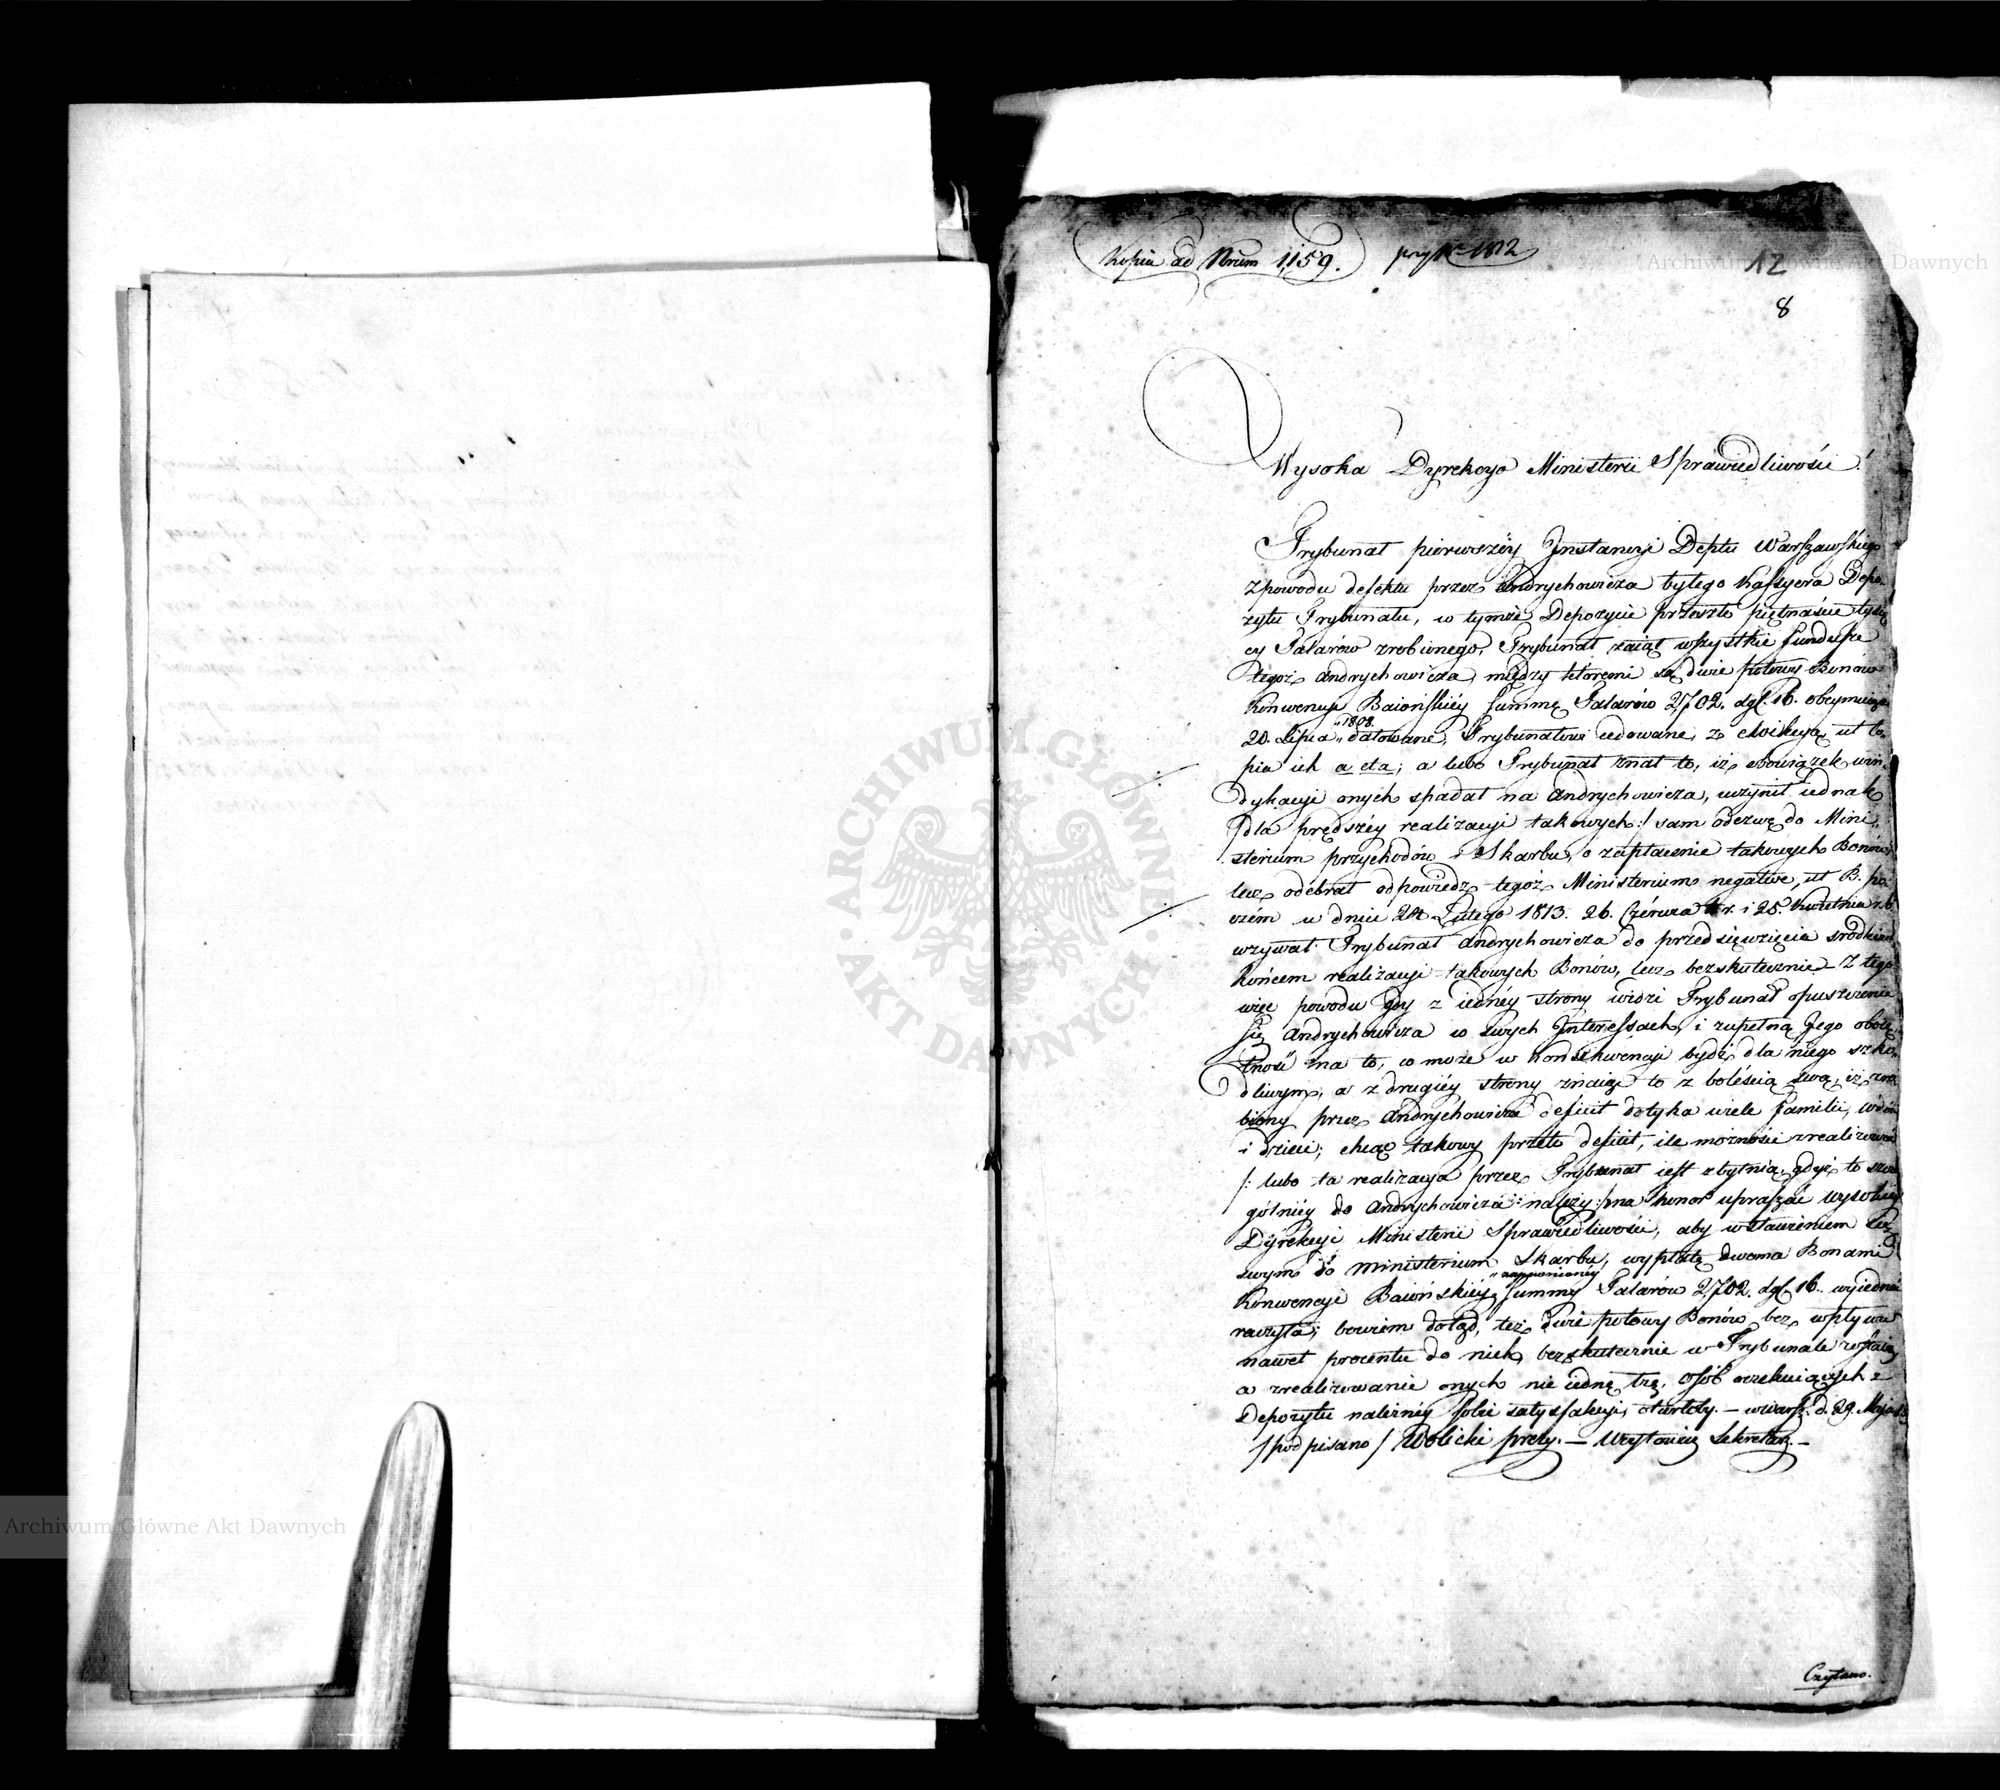 Kopia ad Nrum 1159.
12
8
Wysoka Dyrekcyo Ministerii Sprawiedliwości!
Trybunał pierwszéy Jnstancyi Deptu Warszawskiego
z powodu defektu przez Andrychowicza byłego Kassyera Depo-
zytu Trybunału, w tymże Depozycie przeszło piętnaście tysię
cy Talarów zrobionego, Trybunał zaiął wszystkie fundusze
tegoż Andrychowicza, między któremi są dwie połowy Bonów
Konwencyi Baiońskiéy summę Talarów 2702. dgl. 16. obeymuiące
20. Lipca "1808. datowane, Trybunałowi cedowane, z ut ko-
pia ich a et a; a lubo Trybunał znał to, iż obowiązek win-
dykacyi onych spadał na Andrychowicza, uczynił iednak
/dla prędszéy realizacyi takowych:/ sam odezwę do Mini-
sterium przychodów i Skarbu, o zapłacenie takowych Bonów,
lecz odebrał odpowiedz tegoż Ministerium negative, ut B. po-
czém w dniu 24. Lutego 1813. 26. Czérwca t. r. i 25. Kwietnia r. b.
wzywał Trybunał Andrychowicza do przedsięwzięcia srodków
końcem realizacyi takowych Bonów, lecz bezskutecznie – Z tego
więc powodu gdy z iednéy strony widzi Trybunał opuszczenie
się Andrychowicza w swych Jnteressach, i zupełną Jego oboię-
tność na to, co może w konsekwencyi bydź dla niego szko-
dliwym, a z drugiéy strony znaiąc to z boleścią swą, iż zro
biony przez Andrychowicza deficit dotyka wiele familii, wdów
i dzieci; chcąc takowy przeto deficit, ile możności zrealizować
/: lubo ta realizacya przez Trybunał iest zbytnią, gdyż to szcze
gólniéy do Andrychowicza należy:/ ma honor upraszać Wysokiéy
Dyrekcyi Ministerii Sprawiedliwości, aby wstawieniem się
swym do Ministerium Skarbu, wypłatę dwoma Bonami
Konwencyi Baiońskiéy "zapewnionéy summy Talarów 2702. dgl. 16. wyiednać
raczyła; bowiem dotąd, też dwie połowy Bonów bez wpływu
nawet procentu do nich, bezskutecznie w Trybunale zostaią,
a zrealizowanie onych nie iednę łzę, osób oczekuiących z
Depozytu należnéy sobie satysfakcyi, otarłoby. – w Warsz. d. 29. Maja
/podpisano/ Wolicki prezy. – Sekretarz. –
Czytano.
Archiwum Główne Akt Dawnych
ARCHIWUM GŁÓWNE
AKT DAWNYCH
Archiwum Główne Akt Dawnych